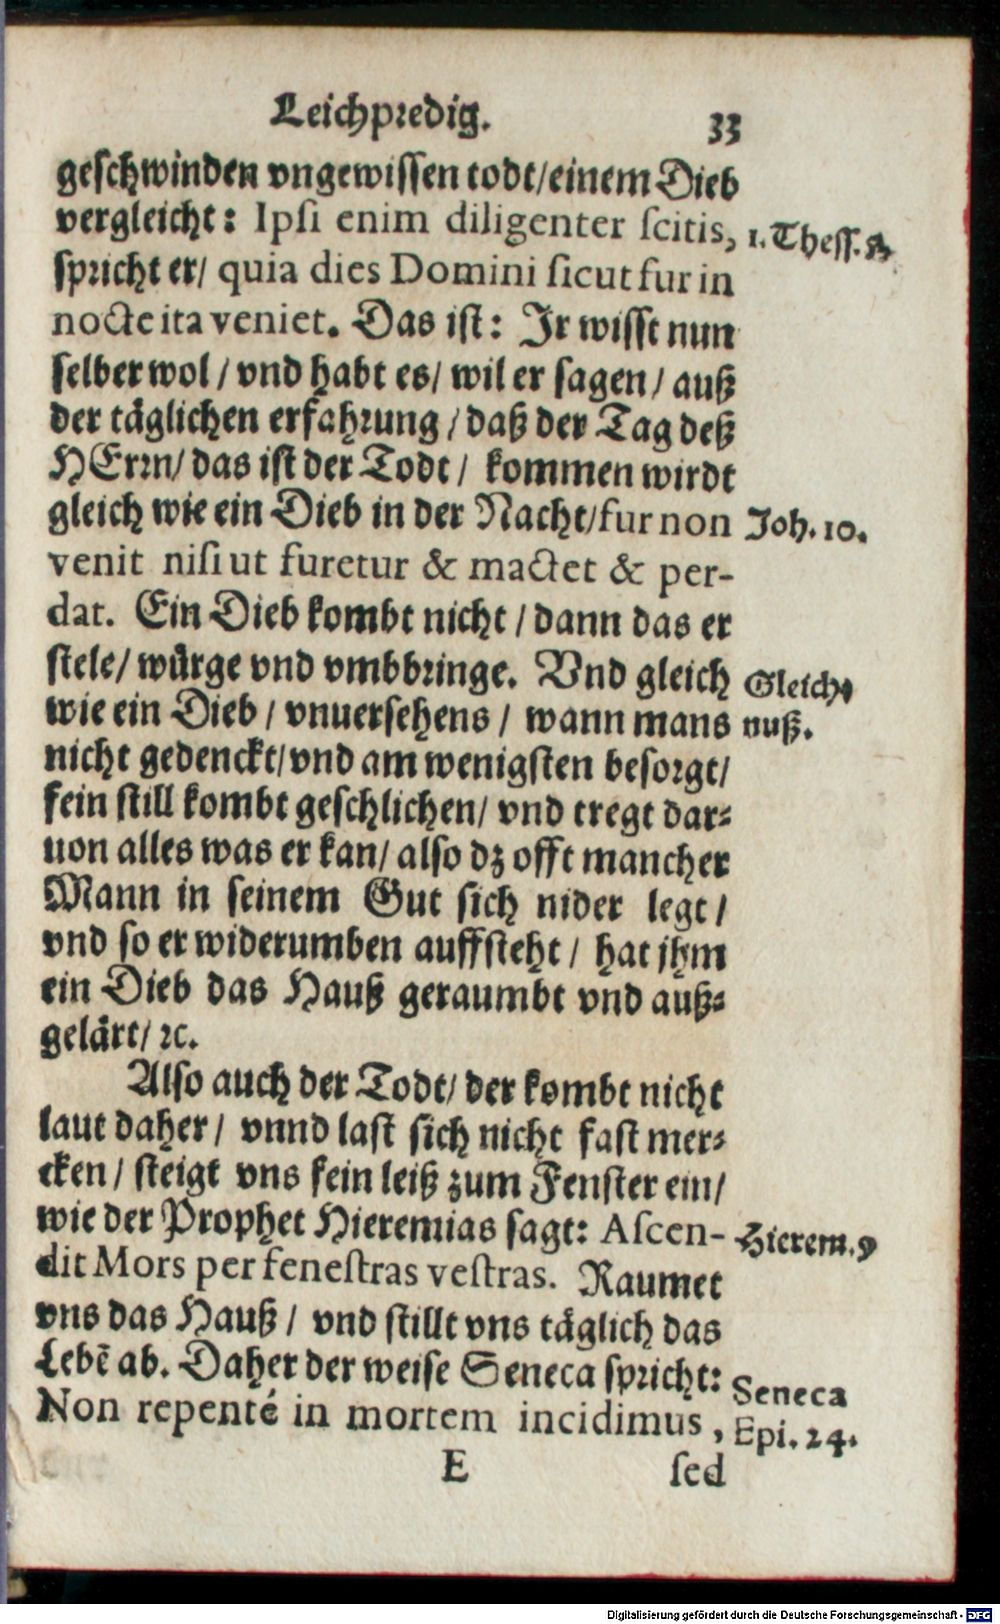 Leichpredig.
33
geschwinden vngewissen todt/einem Dieb
vergleicht: Ipsi enim diligenter scitis,
1. Thess.
spricht er/ quia dies Domini sicut fur in
nocte ita veniet. Das ist: Ir wisst nun
selber wol/ vnd habt es/ wil er sagen/ auß
der täglichen erfahrung/ daß der Tag deß
HErrn/ das ist der Todt/ kommen wirdt
gleich wie ein Dieb in der Nacht/fur non
Joh. 10.
venit nisi ut furetur & mactet & per-
dat. Ein Dieb kombt nicht/ dann das er
stele/ würge vnd vmbbringe. Vnd gleich
Gleich-
wie ein Dieb/ vnuersehens/ wann mans
nuß.
nicht gedenckt/vnd am wenigsten besorgt/
fein still kombt geschlichen/ vnd tregt dar-
uon alles was er kan/ also dz offt mancher
Mann in seinem Gut sich nider legt/
vnd so er widerumben auffsteht/ hat jhm
ein Dieb das Hauß geraumbt vnd auß-
gelärt/ ꝛc.
Also auch der Todt/ der kombt nicht
laut daher/ vnnd last sich nicht fast mer-
cken/ steigt vns fein leiß zum Fenster ein/
wie der Prophet Hieremias sagt: Ascen-
Hierem. 9
dit Mors per fenestras vestras. Raumet
vns das Hauß/ vnd stillt vns täglich das
Lebē ab. Daher der weise Seneca spricht:
Seneca
Non repenté in mortem incidimus,
Epi. 24.
E
sed
Digitalisierung gefördert durch die Deutsche Forschungsgemeinschaft - DFG